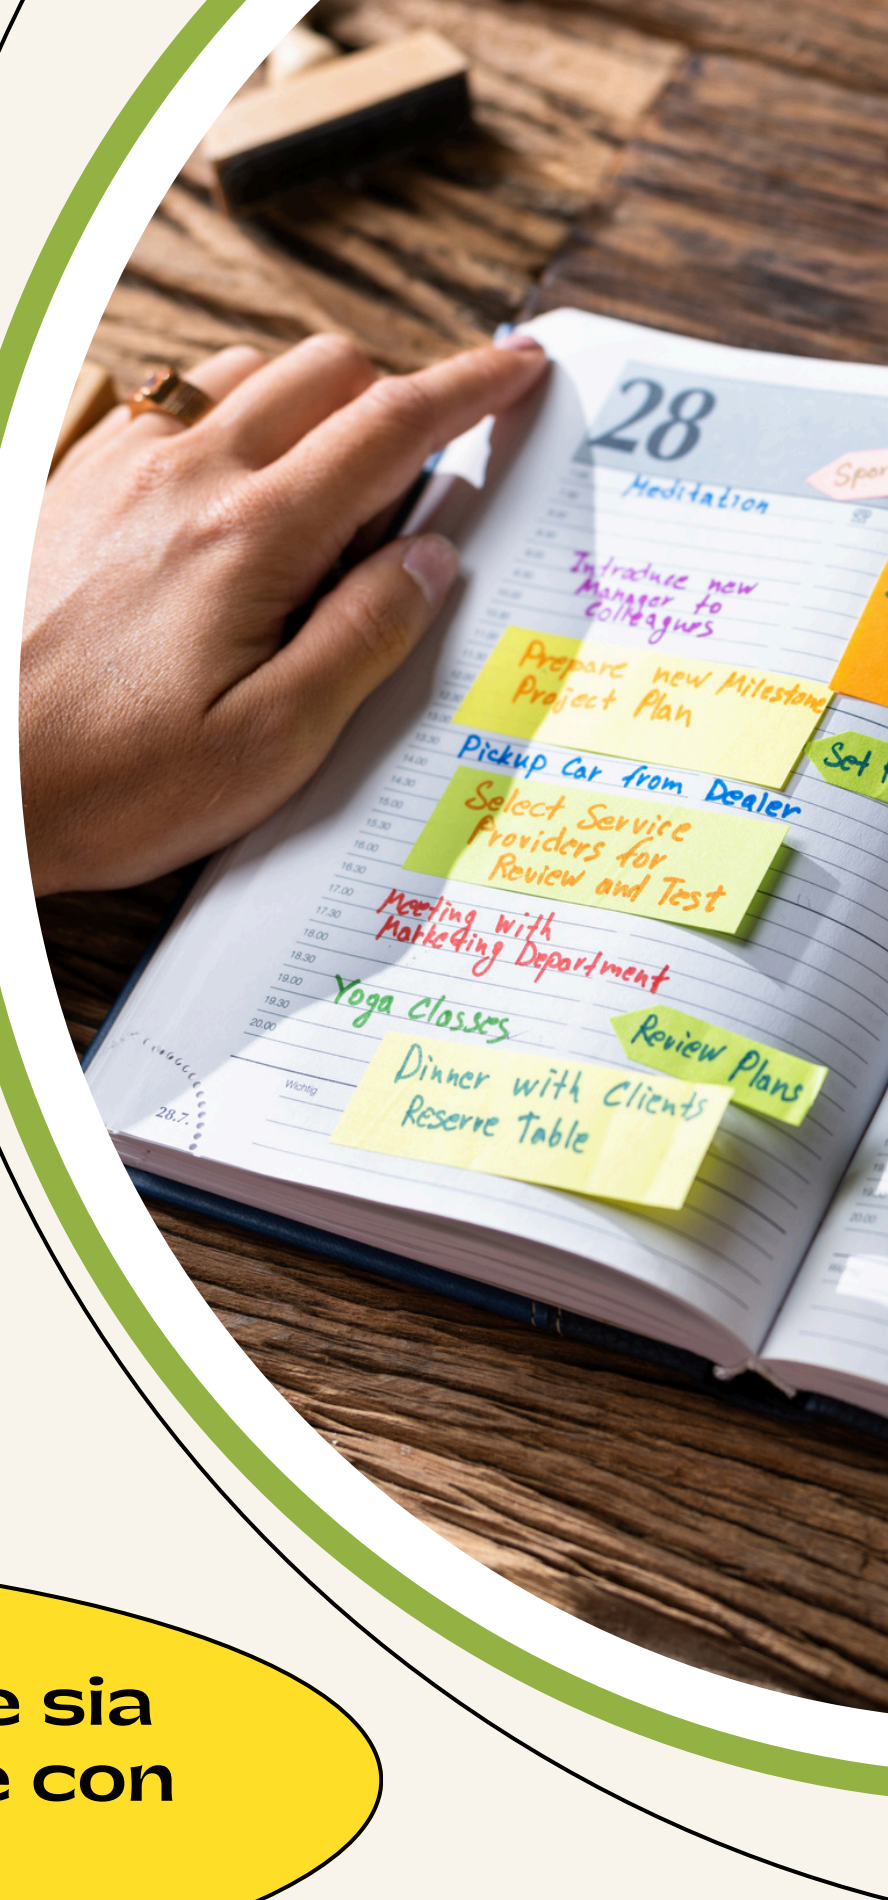 28
Spor
Meditation
Introduce new
Manager to
Colleagues
Prepare new Milestone
Project Plan
Set
Pickup Car from Dealer
Select Service
Providers for
Review and Test
Meeting with
Marketing Department
Yoga Classes
Review Plans
Dinner with Clients
Reserve Table
13.00
13.30
14.00
14.30
15.00
15.30
16.00
16.30
17.00
17.30
18.00
18.30
19.00
19.30
20.00
Wichtig
28.7.
20.00
e sia
e con